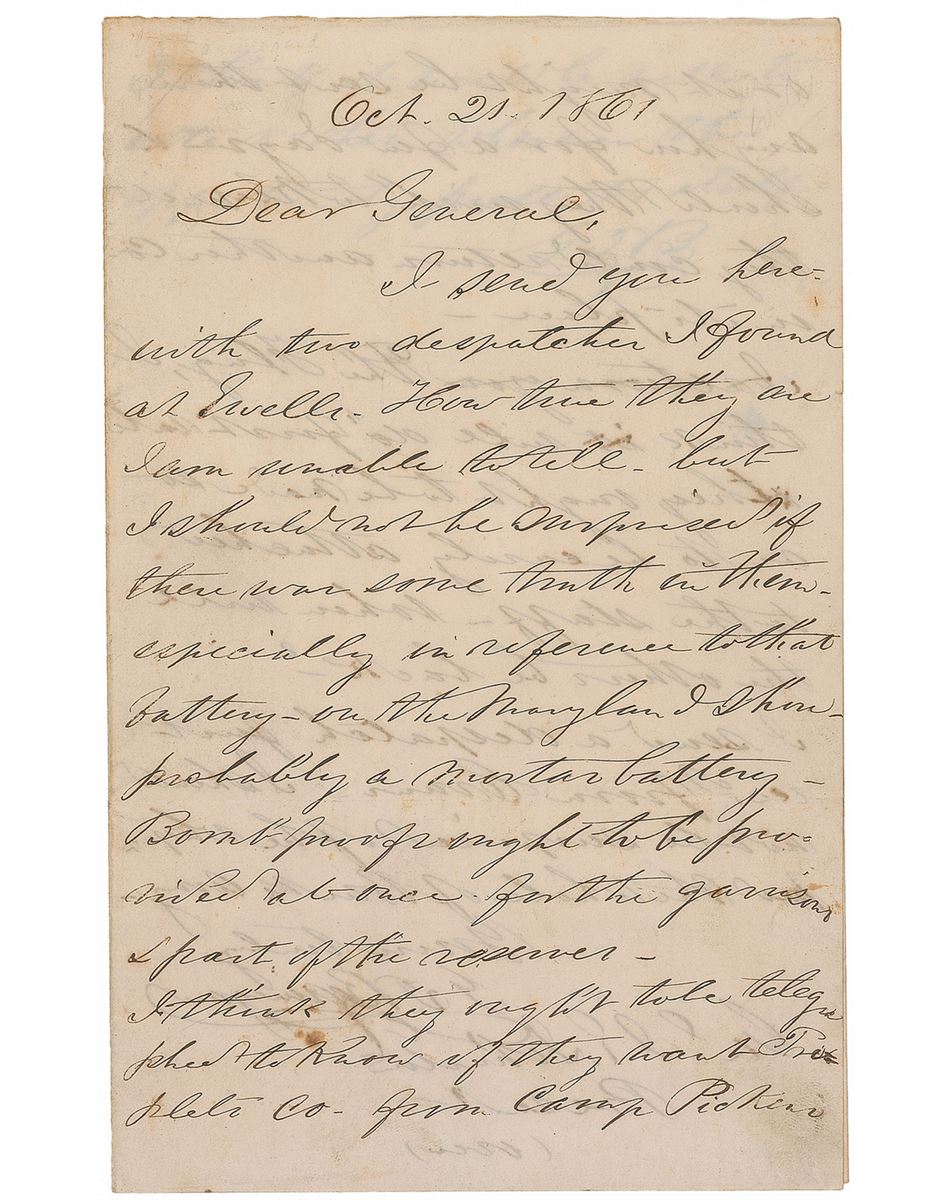 Oct. 21. 1861
Dear General,
I send you here-
with two despatches I found
at Ewells - How true they are
I am unable to tell - but
I should not be surprised if
there was some truth in them -
especially in reference to that
battery - on the Maryland shore -
probably a mortar battery -
Bomb-proofs ought to be pro-
vided at once for the garrisons
& part of the reserves -
I think they ought to be telegra
phed to know if they want
Co - from Camp Pickens